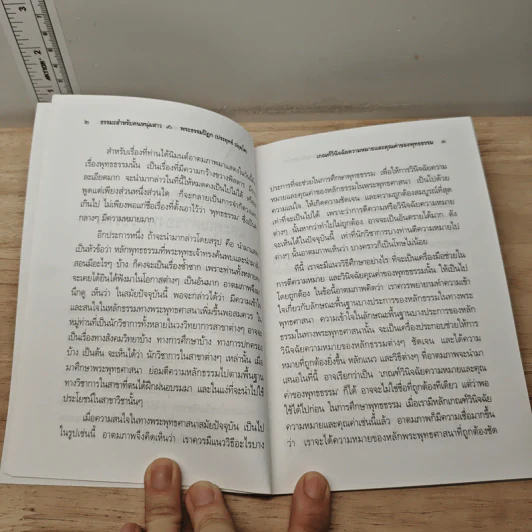 ๒ ธรรมะสำหรับคนหนุ่มสาว พระธรรมปิฎก (ประยุทธ์
สำหรับเรื่องที่ท่านได้นิมนต์อาตมภาพมาแสดงในวันนี้
เรื่องพุทธธรรมนั้น เป็นเรื่องที่มีความกว้างขวางพิสดาร
ละเอียดมาก จะนำมากล่าวในที่นี้ให้หมดคงเป็นไปไม่ได้ หรือ
พูดแต่เพียงส่วนหนึ่งส่วนใด ก็จะกลายเป็นการจำกัด
เกินไป ไม่เพียงพอแก่ชื่อเรื่องที่ตั้งเอาไว้ว่า พุทธธรรม ซึ่งเป็น
กลางๆ มีความหมายมาก
อีกประการหนึ่ง ถ้าจะนำมากล่าวโดยสรุป คือ
เป็นหัวข้อว่า หลักพุทธธรรมที่พระพุทธเจ้าทรงค้นพบและนำมา
สอนมีอะไรๆ บ้าง ก็คงจะเป็นเรื่องซ้ำซาก เพราะท่านทั้งหลาย
จะเคยได้ยินได้ฟังมาในโอกาสต่างๆ เป็นอันมาก อาตมภาพจึง
นึกดู เห็นว่า ในสมัยปัจจุบันนี้ พอจะกล่าวได้ว่า มีความเข้าใจ
และสนใจในหลักธรรมทางพระพุทธศาสนาเพิ่มขึ้นพอสมควร ใน
หมู่ท่านที่เป็นนักวิชาการทั้งหลายในวงวิทยาการสาขาต่างๆ อาจจะ
เป็นเรื่องทางสังคมวิทยาบ้าง ทางการศึกษาบ้าง ทางการปกครอง
บ้าง เป็นต้น จะเห็นได้ว่า นักวิชาการในสาขาต่างๆ เหล่านั้น เมื่อ
มาศึกษาพระพุทธศาสนา ย่อมตีความหลักธรรมไปตามพื้นฐาน
ทางวิชาการในสาขาที่ตนได้ฝึกฝนอบรมมา และในแง่ที่จะนำไปใช้
ประโยชน์ในสาขาวิชานั้นๆ
เมื่อความสนใจในทางพระพุทธศาสนาสมัยปัจจุบัน เป็นไป
ในรูปเช่นนี้ อาตมภาพจึงคิดเห็นว่า เราควรมีแนววิธีอะไรบาง
เกณฑ์วินิจฉัยความหมายและคุณค่าของพุทธธรรม ๓
ประการที่จะช่วยในการศึกษาพุทธธรรม เพื่อให้การวินิจฉัยความ
หมายและคุณค่าของหลักธรรมในพระพุทธศาสนา เป็นไปด้วย
ความแน่ใจ ให้เกิดความชัดเจน และความถูกต้องสมบูรณ์ที่สุด
เท่าที่จะเป็นไปได้ เพราะว่าการตีความหรือวินิจฉัยความหมาย
ต่างๆ นั้นหากว่าทำไปไม่ถูกต้อง อาจจะเป็นอันตรายได้มาก ดัง
จะเห็นได้ในปัจจุบันนี้ เท่าที่นักวิชาการบางท่านตีความหมายไป
ต่างๆ นั้นอาตมภาพเห็นว่า บางคราวก็เป็นโทษไม่น้อย
ทีนี้ เราจะมีแนววิธีศึกษาอย่างไร ที่จะเป็นเครื่องมือช่วยใน
การตีความหมาย และวินิจฉัยคุณค่าของพุทธธรรมนั้น ให้เป็นไป
โดยถูกต้อง ในข้อนี้อาตมภาพคิดว่า เราควรพยายามทำความเข้า
ใจเกี่ยวกับลักษณะพื้นฐานบางประการของหลักธรรมในทางพระ
พุทธศาสนา ความเข้าใจในลักษณะพื้นฐานบางประการของหลัก
ธรรมในทางพระพุทธศาสนานั้น จะเป็นเครื่องประกอบช่วยให้การ
วินิจฉัยความหมายของหลักธรรมต่างๆ ชัดเจน และได้ความ
หมายที่ถูกต้องยิ่งขึ้น หลักแนว และวิธีต่างๆ ที่อาตมภาพจะนำมา
เสนอในที่นี้ อาจเรียกว่าเป็น 'เกณฑ์วินิจฉัยความหมายและคุณ
ค่าของพุทธธรรม' ก็ได้ อาจจะไม่ใช่ชื่อที่ถูกต้องทีเดียว แต่ว่าพอ
ใช้ได้ไปก่อน ในการศึกษาพุทธธรรม เมื่อเรามีหลักเกณฑ์วินิจฉัย
ความหมายและคุณค่าเช่นนี้แล้ว อาตมภาพก็มีความเชื่อมากขึ้น
ว่า เราจะได้ความหมายของหลักพระพุทธศาสนาที่ถูกต้องชัด